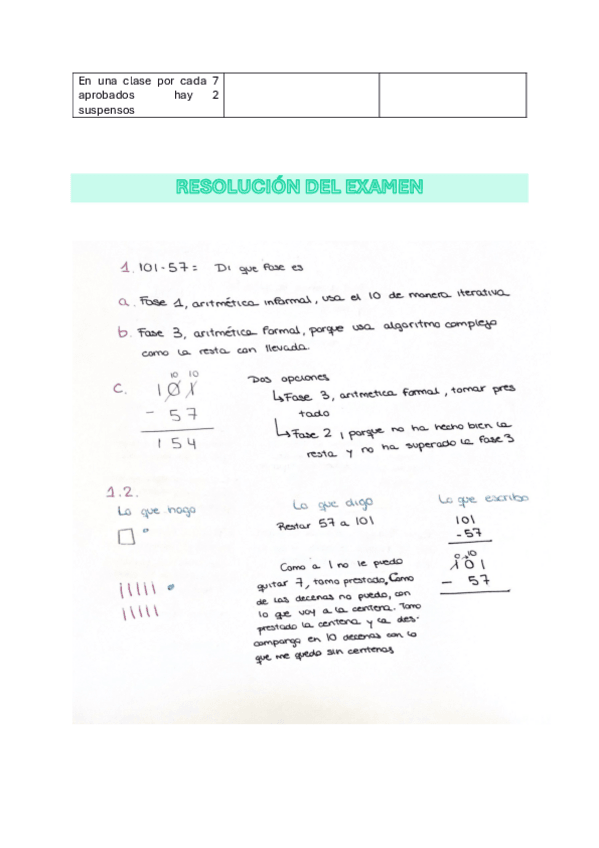 En una clase por cada 7
aprobados hay 2
suspensos
RESOLUCIÓN DEL EXAMEN
1. 101-57= Di que fase es
a. Fase 1, aritmética informal, usa el 10 de manera iterativa
b. Fase 3, aritmética formal, porque usa algoritmo complejo
como la resta con llevada.
c.
10 10
1 0 1
- 5 7
1 5 4
Dos opciones
↳Fase 3, aritmetica formal, tomar pres
tado
↳Fase 2, porque no ha hecho bien la
resta y no ha superado la fase 3
1.2.
Lo que hago
Lo que digo
Restar 57 a 101
Como a 1 no le puedo
quitar 7, tomo prestado. Como
de las decenas no puedo, con
lo que voy a la centena. Tomo
prestado la centena y la des-
compongo en 10 decenas con lo
que me quedo sin centenas
Lo que escribo
101
-57
0 10
1 0 1
- 57